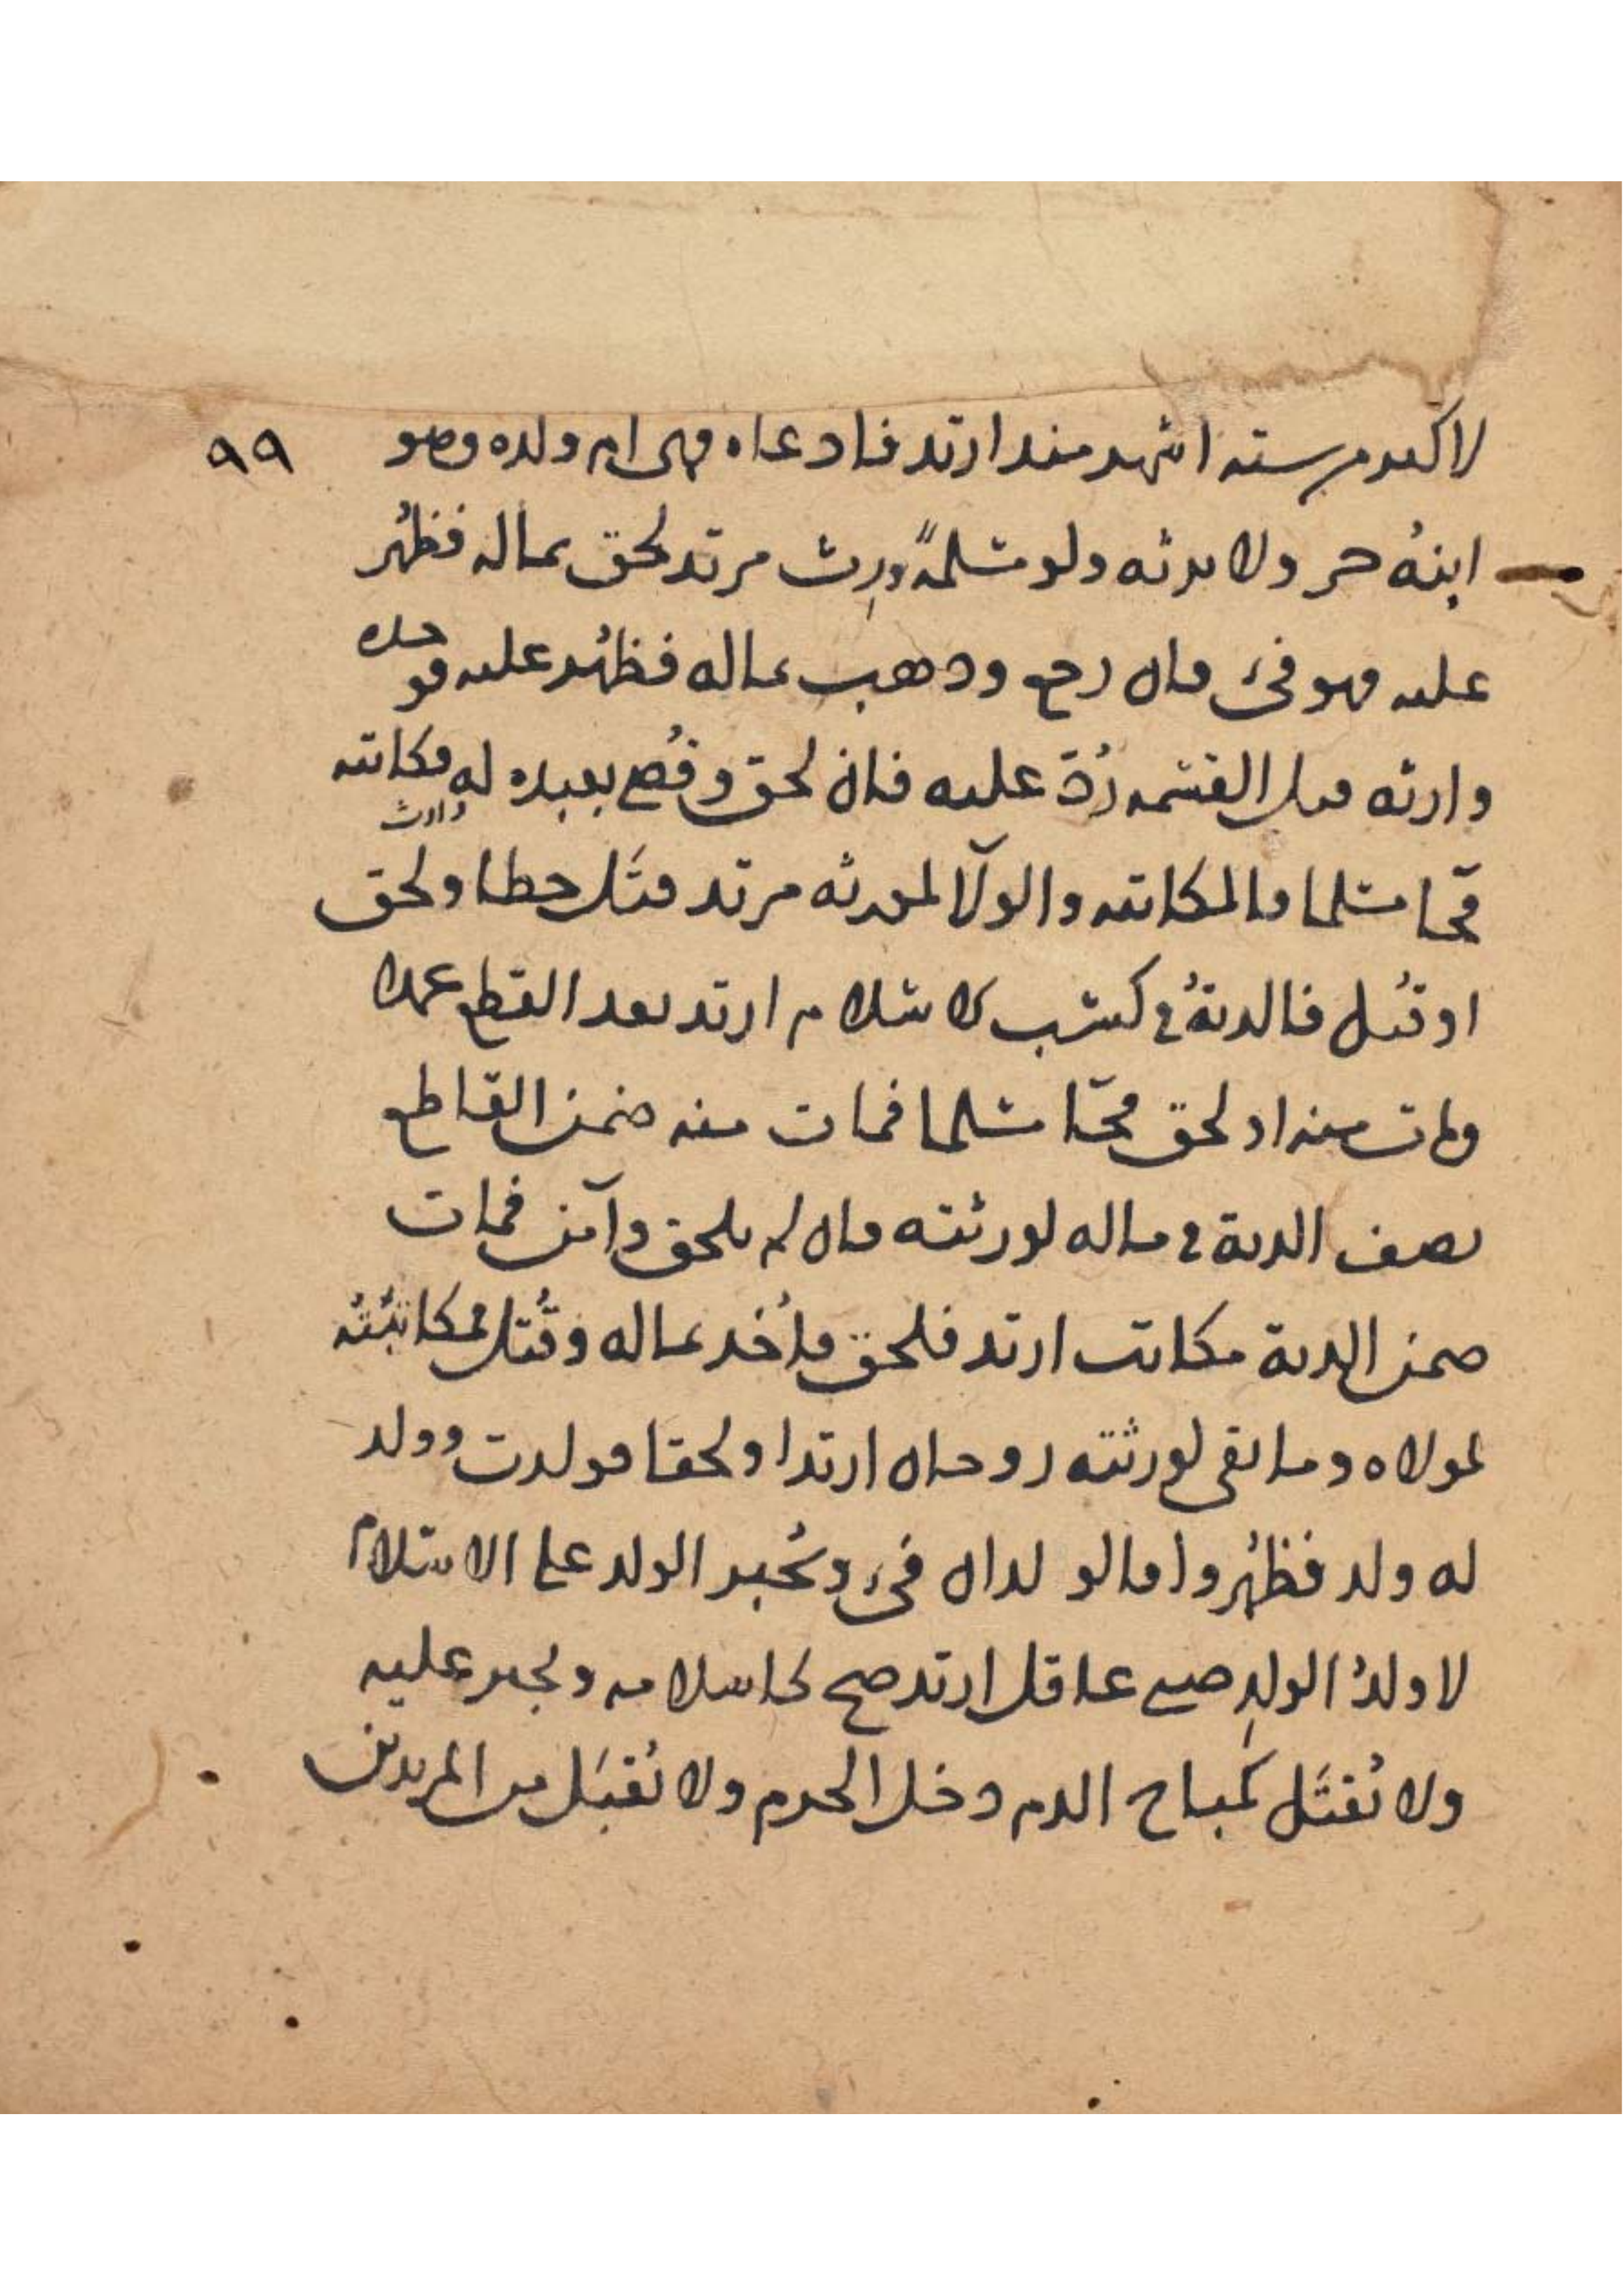 لاكثر من ستة اشهر منذ ارتد فادعاه فهي ام ولده وهو ٩٩
ابنهُ حر ولا يرثه ولو مسلمةً ورِث مرتد لحق بماله فظُهر
عليه فهو فيء فان رجع وذهب بماله فظُهر عليه فوجده
وارثه قبل القسمة رُدّ عليه فان لحق وقُضي بعبده له فكاتبه وارث
فجا مسلما فالمكاتبة والولآ لمورثه مرتد قتَل خطا ولحق
او قُتل فالديةُ في كسب الاسلام ارتد بعد القطع عمدا
ومات منه او لحق فجآ مسلما فمات منه ضمن القاطع
نصف الدية في ماله لورثته فان لم يلحق وآمن فمات
ضمن الدية مكاتب ارتد فلحق فاُخذ بماله وقُتل فمكاتبتُه
لمولاه وما بقي لورثته زوجان ارتدا ولحقا فولدت وولد
له ولد فظُهروا فالولدان فيء ويُجبر الولد على الاسلام
لا ولدُ الولدِ صبي عاقل ارتد صح كاسلامه ويجبر عليه
ولا يُقتَل كمباح الدم دخل الحرم ولا يُقبَل من المرتدين